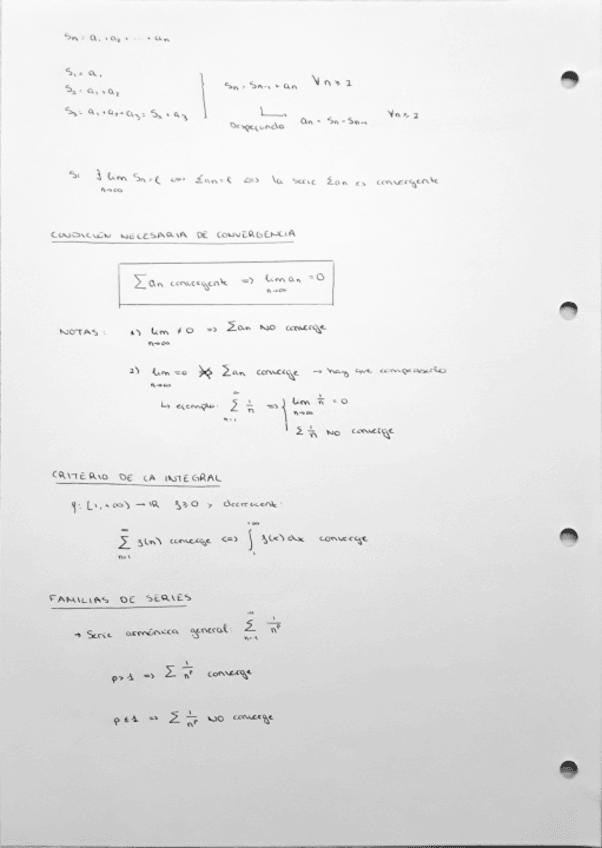 Sn = a₁ + a₂ + ··· + an
S₁ = a₁
S₂ = a₁ + a₂
S₃ = a₁ + a₂ + a₃ = S₂ + a₃
Sn = Sn-1 + an ∀n ≥ 2
Despejando an = Sn - Sn-1 ∀n ≥ 2
Si ∃ lim Sn = l ⇔ Σan = l ⇔ la serie Σan es convergente
n→∞
CONDICIÓN NECESARIA DE CONVERGENCIA
Σan convergente ⇒ lim an = 0
n→∞
NOTAS: 1) lim ≠ 0 ⇒ Σan NO converge
n→∞
2) lim = 0 ⇏ Σan converge → hay que comprobarlo
n→∞
↳ ejemplo: ∞ Σ n=1 1/n ⇒ { lim 1/n = 0
n→∞
Σ 1/n NO converge
CRITERIO DE LA INTEGRAL
f: [1, +∞) → ℝ f ≥ 0 y decreciente:
∞ Σ n=1 f(n) converge ⇔ ∫ 1 +∞ f(x) dx converge
FAMILIAS DE SERIES
→ Serie armónica general: ∞ Σ n=1 1/nᵖ
p > 1 ⇒ Σ 1/nᵖ converge
p ≤ 1 ⇒ Σ 1/nᵖ NO converge